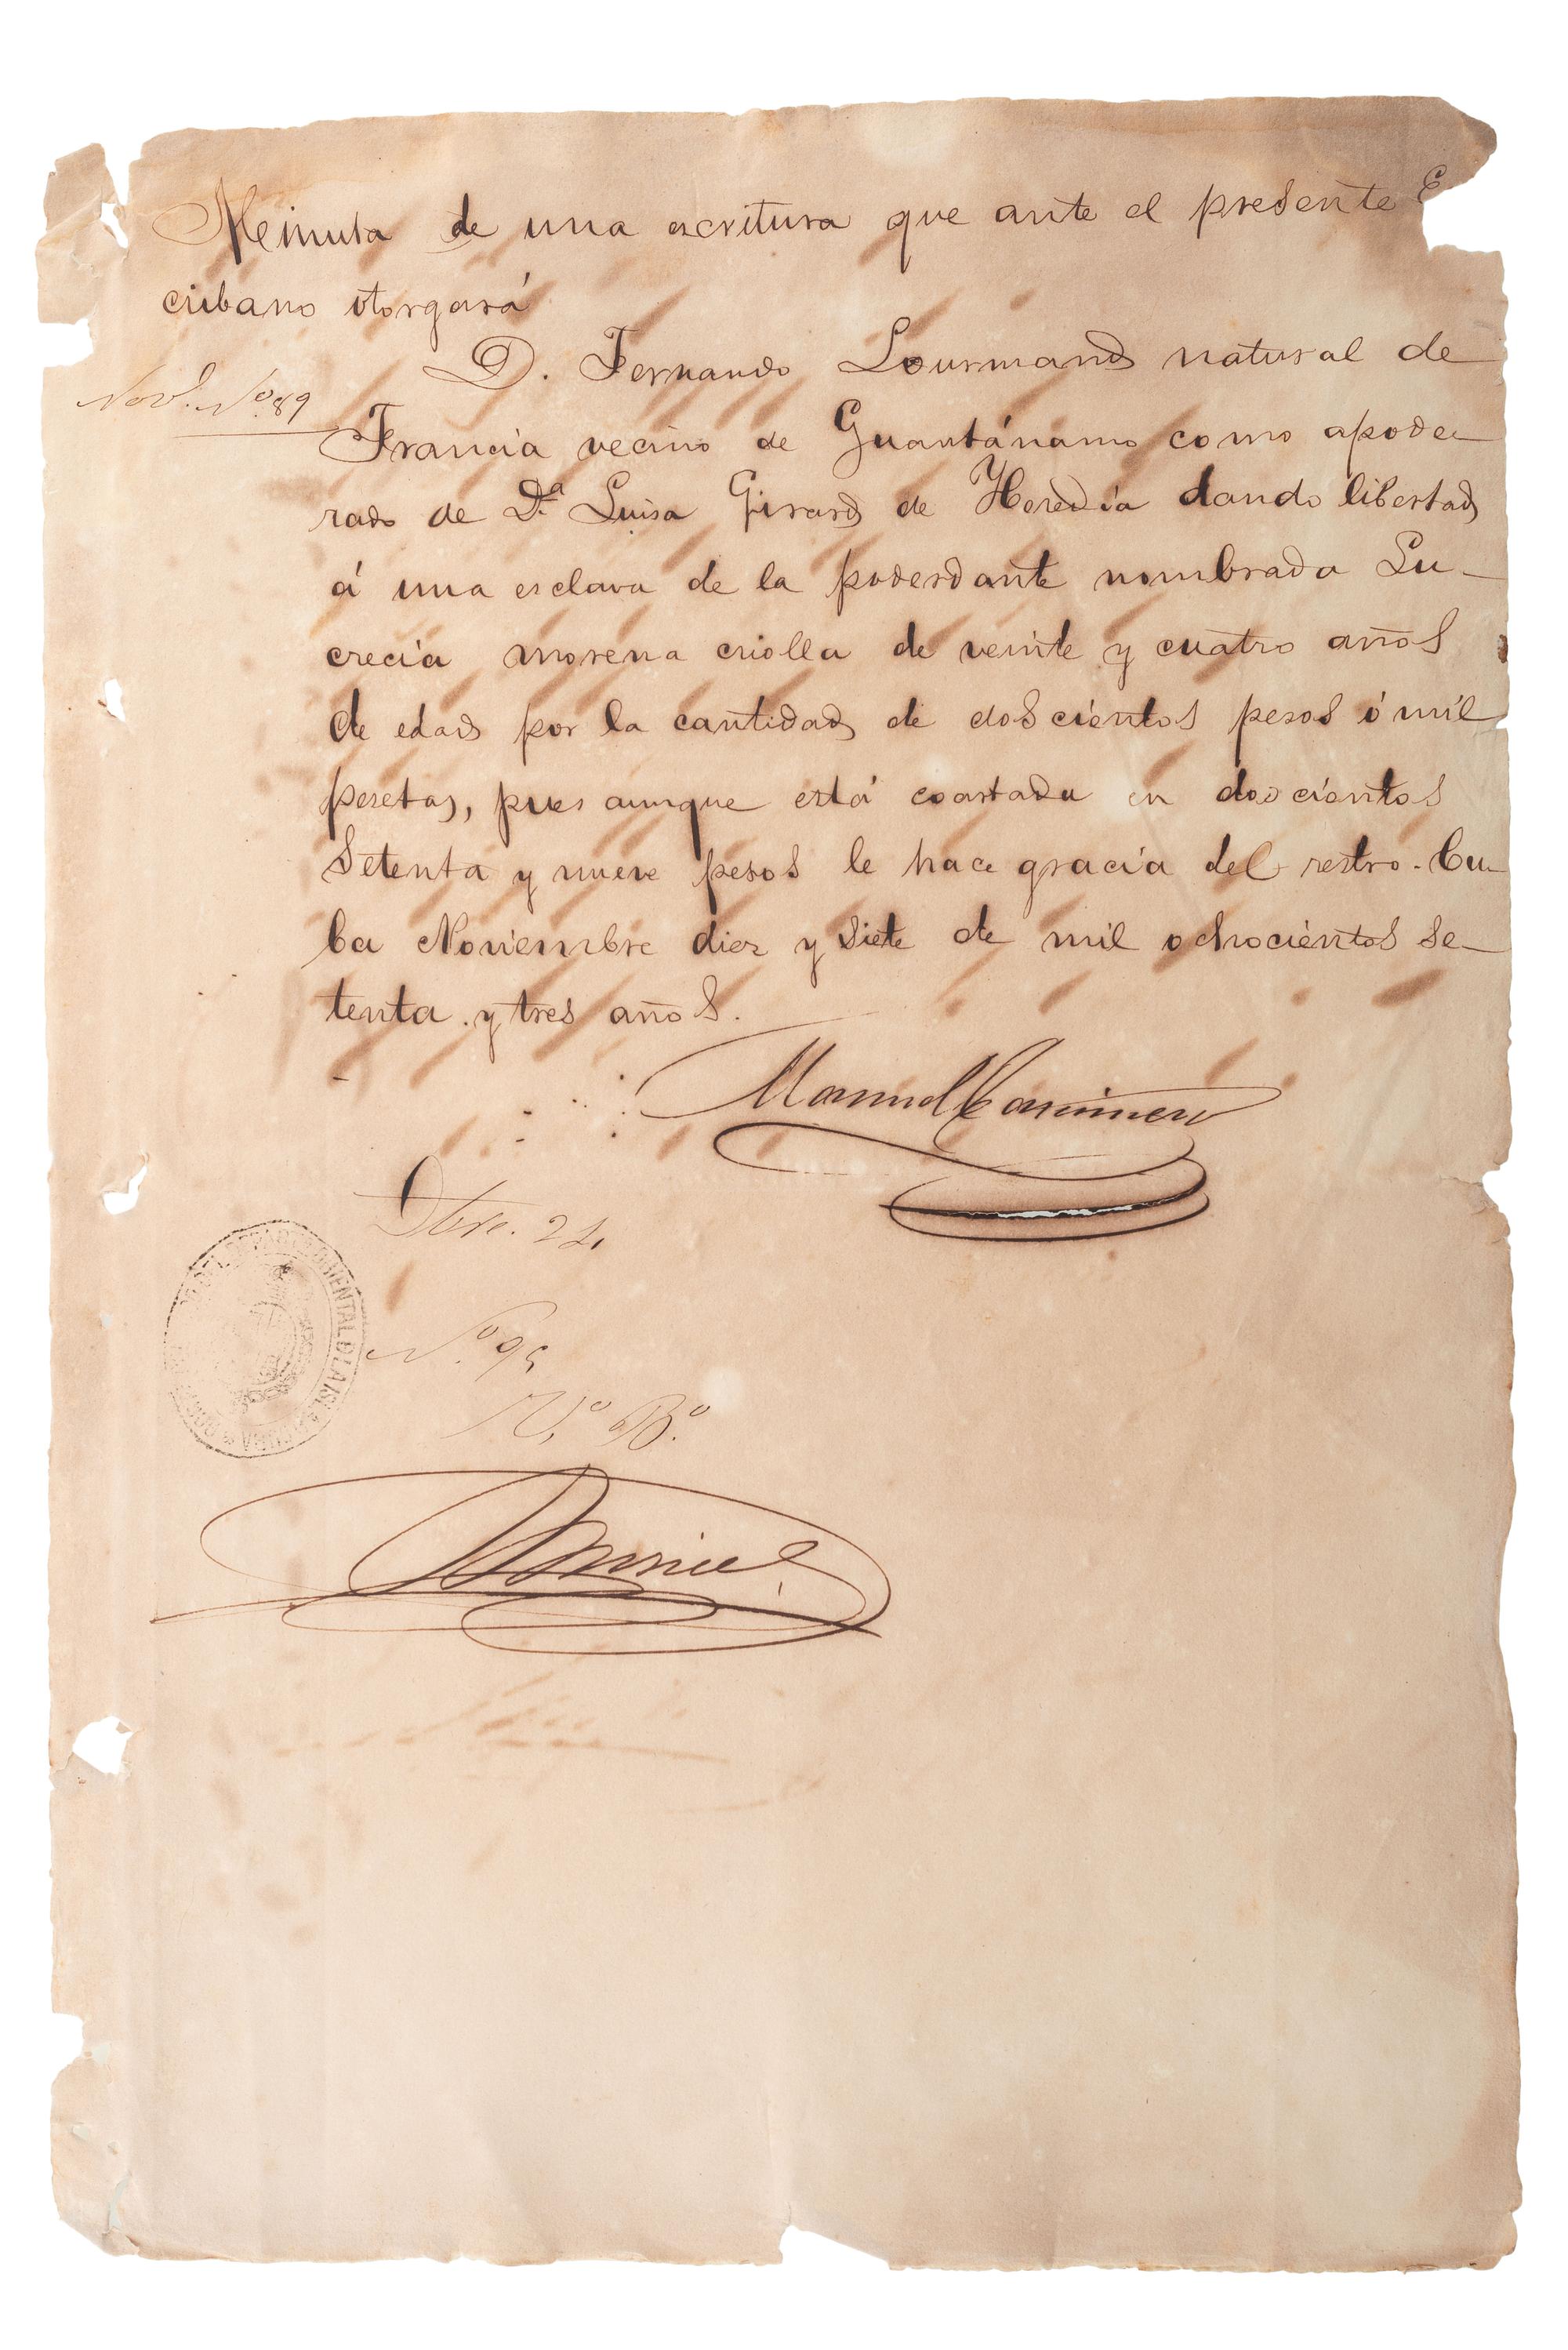 Meinuta de una escritura que ante el presente E
cribano otorgará
D. Fernando Lourmand natural de
Nov. Nº. 89
Francia vecino de Guantánamo como apode-
rado de D.ª Luisa Girard de Heredia dando libertad
á una esclava de la poderdante nombrada Lu-
crecia morena criolla de veinte y cuatro años
de edad por la cantidad de doscientos pesos ó mil
pesetas, pues aunque está coartada en doscientos
setenta y nueve pesos le hace gracia del restro. Cu-
ba Noviembre diez y siete de mil ochocientos se-
tenta y tres años.
Manuel Caminero
Dbre. 24
Nº. 95
Vº. Bº.